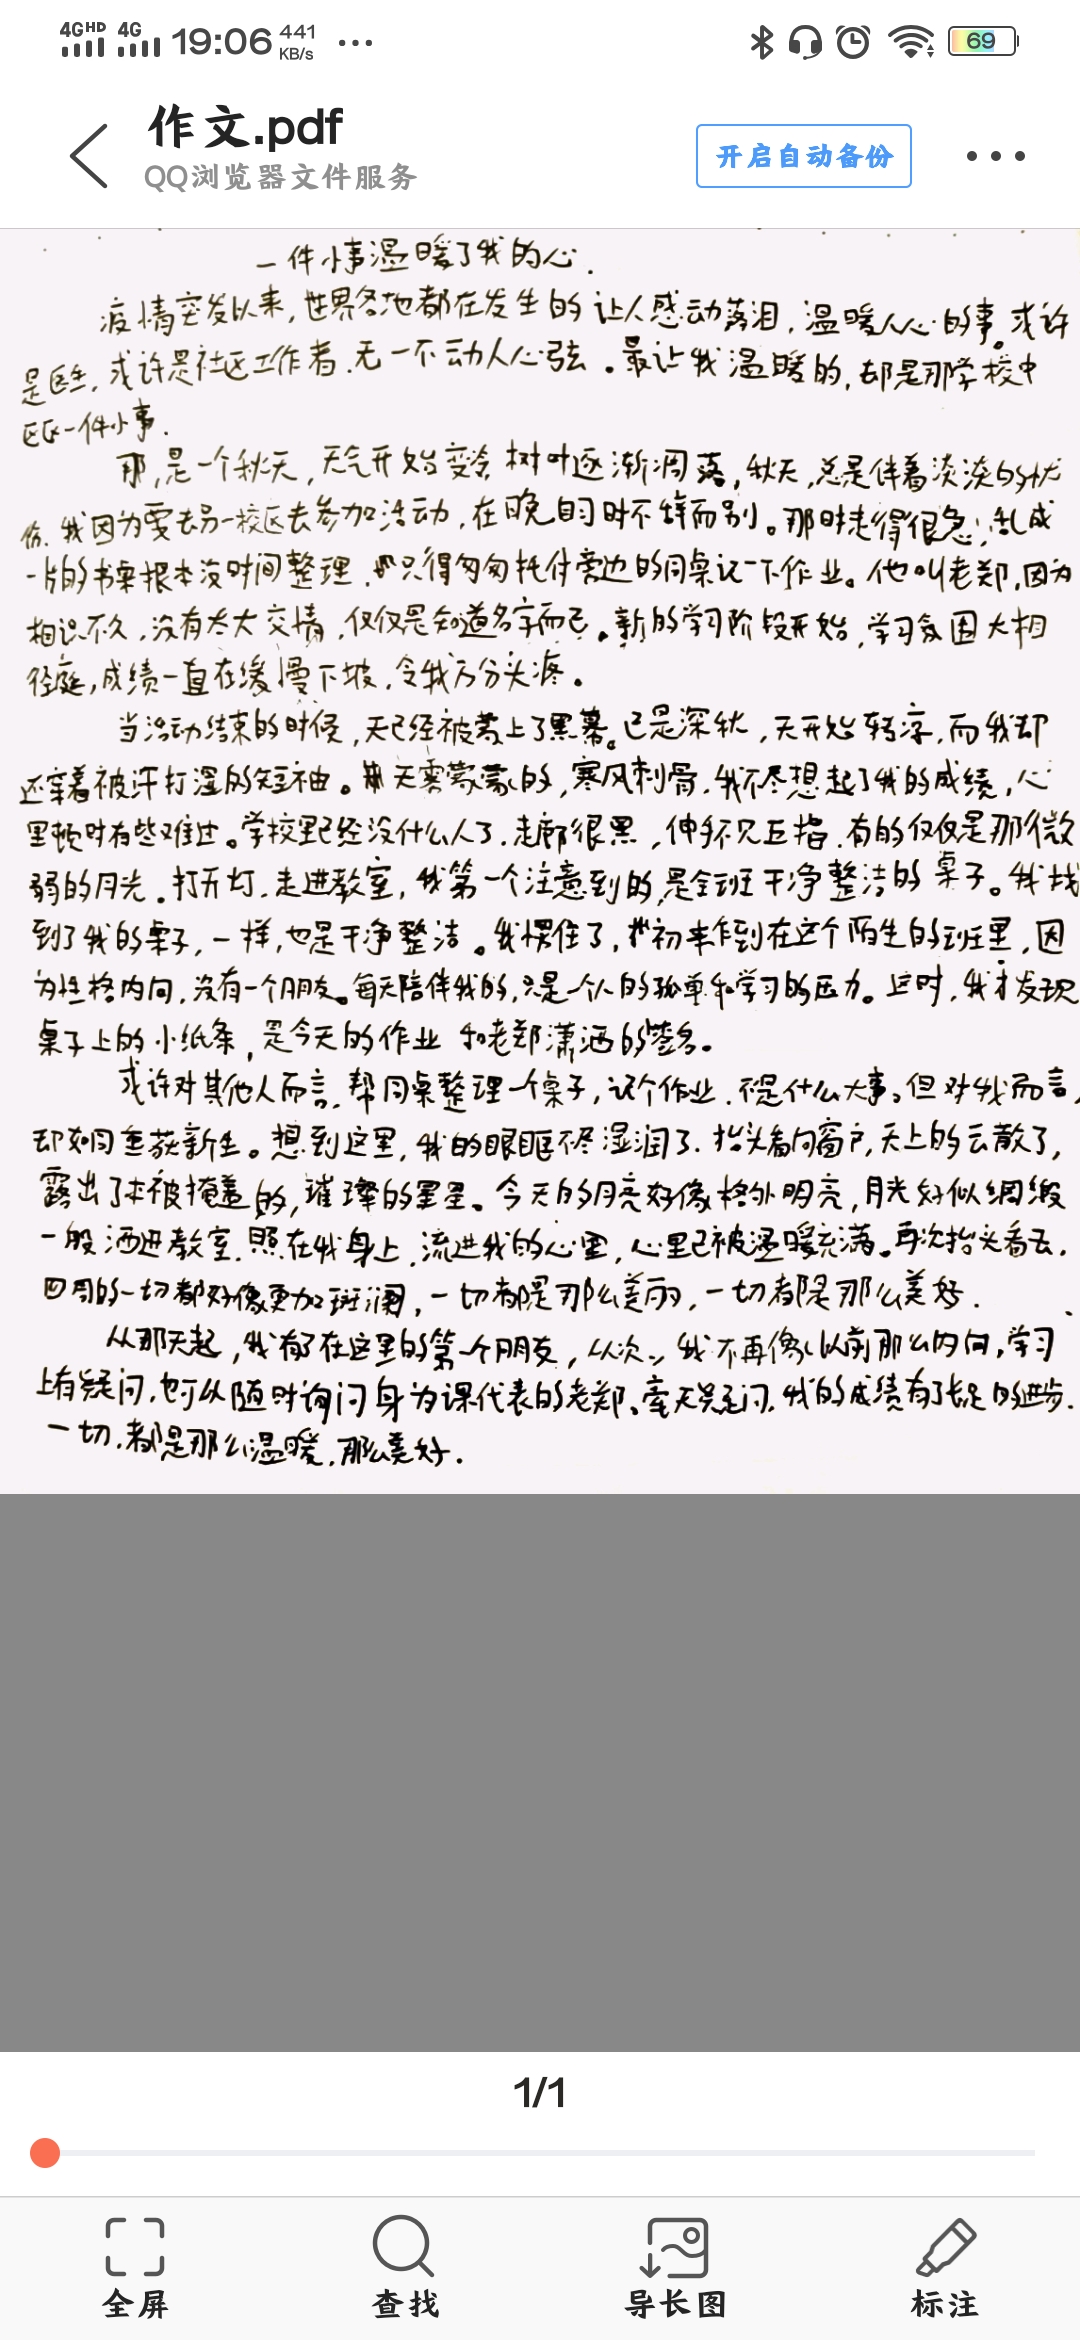 4GHD 4G 19:06 441 KB/s ... 69
作文.pdf
QQ浏览器文件服务
开启自动备份
一件小事温暖了我的心.
疫情突发以来,世界各地都在发生的让人感动落泪,温暖人心的事。或许
是医生,或许是社区工作者.无一不动人心弦。最让我温暖的,却是那学校中
一件小事.
那,是一个秋天,天气开始变冷 树叶逐渐凋落,秋天,总是伴着淡淡的忧
伤.我因为要去另一校区去参加活动,在晚自习时不辞而别。那时走得很急;乱成
一片的书桌根本没时间整理,只得匆匆托付旁边的同桌记一下作业。他叫老郑,因为
相识不久,没有太大交情,仅仅是知道名字而已。新的学习阶段开始,学习氛围大相
径庭,成绩一直在缓慢下坡,令我万分头疼。
当活动结束的时候,天已经被蒙上了黑幕。已是深秋,天开始转凉,而我却
还穿着被汗打湿的短袖。天雾蒙蒙的,寒风刺骨.我不尽想起了我的成绩,心
里顿时有些难过。学校里已经没什么人了.走廊很黑,伸手不见五指.有的仅仅是那微
弱的月光。打开灯.走进教室,我第一个注意到的,是全班干净整洁的桌子。我找
到了我的桌子,一样,也是干净整洁。我愣住了,初来乍到在这个陌生的班里,因
为性格内向,没有一个朋友。每天陪伴我的,只是一个人的孤单和学习的压力。这时,我才发现
桌子上的小纸条,是今天的作业 和老郑潇洒的签名。
或许对其他人而言.帮同桌整理一个桌子,记个作业.不是什么大事。但对我而言,
却如同重获新生。想到这里,我的眼眶不尽湿润了.抬头看向窗户,天上的云散了,
露出了本被掩盖的,璀璨的星星。今天的月亮好像格外明亮,月光好似绸缎
一般洒进教室.照在我身上,流进我的心里,心里已被温暖充满。再次抬头看去.
四周的一切都好像更加斑斓,一切都是那么美丽,一切都是那么美好.
从那天起,我有了在这里的第一个朋友,从次,我不再像以前那么内向,学习
上有疑问.也可以随时询问身为课代表的老郑。我的成绩有了长足的进步.
一切.都是那么温暖.那么美好.
1/1
全屏 查找 导长图 标注